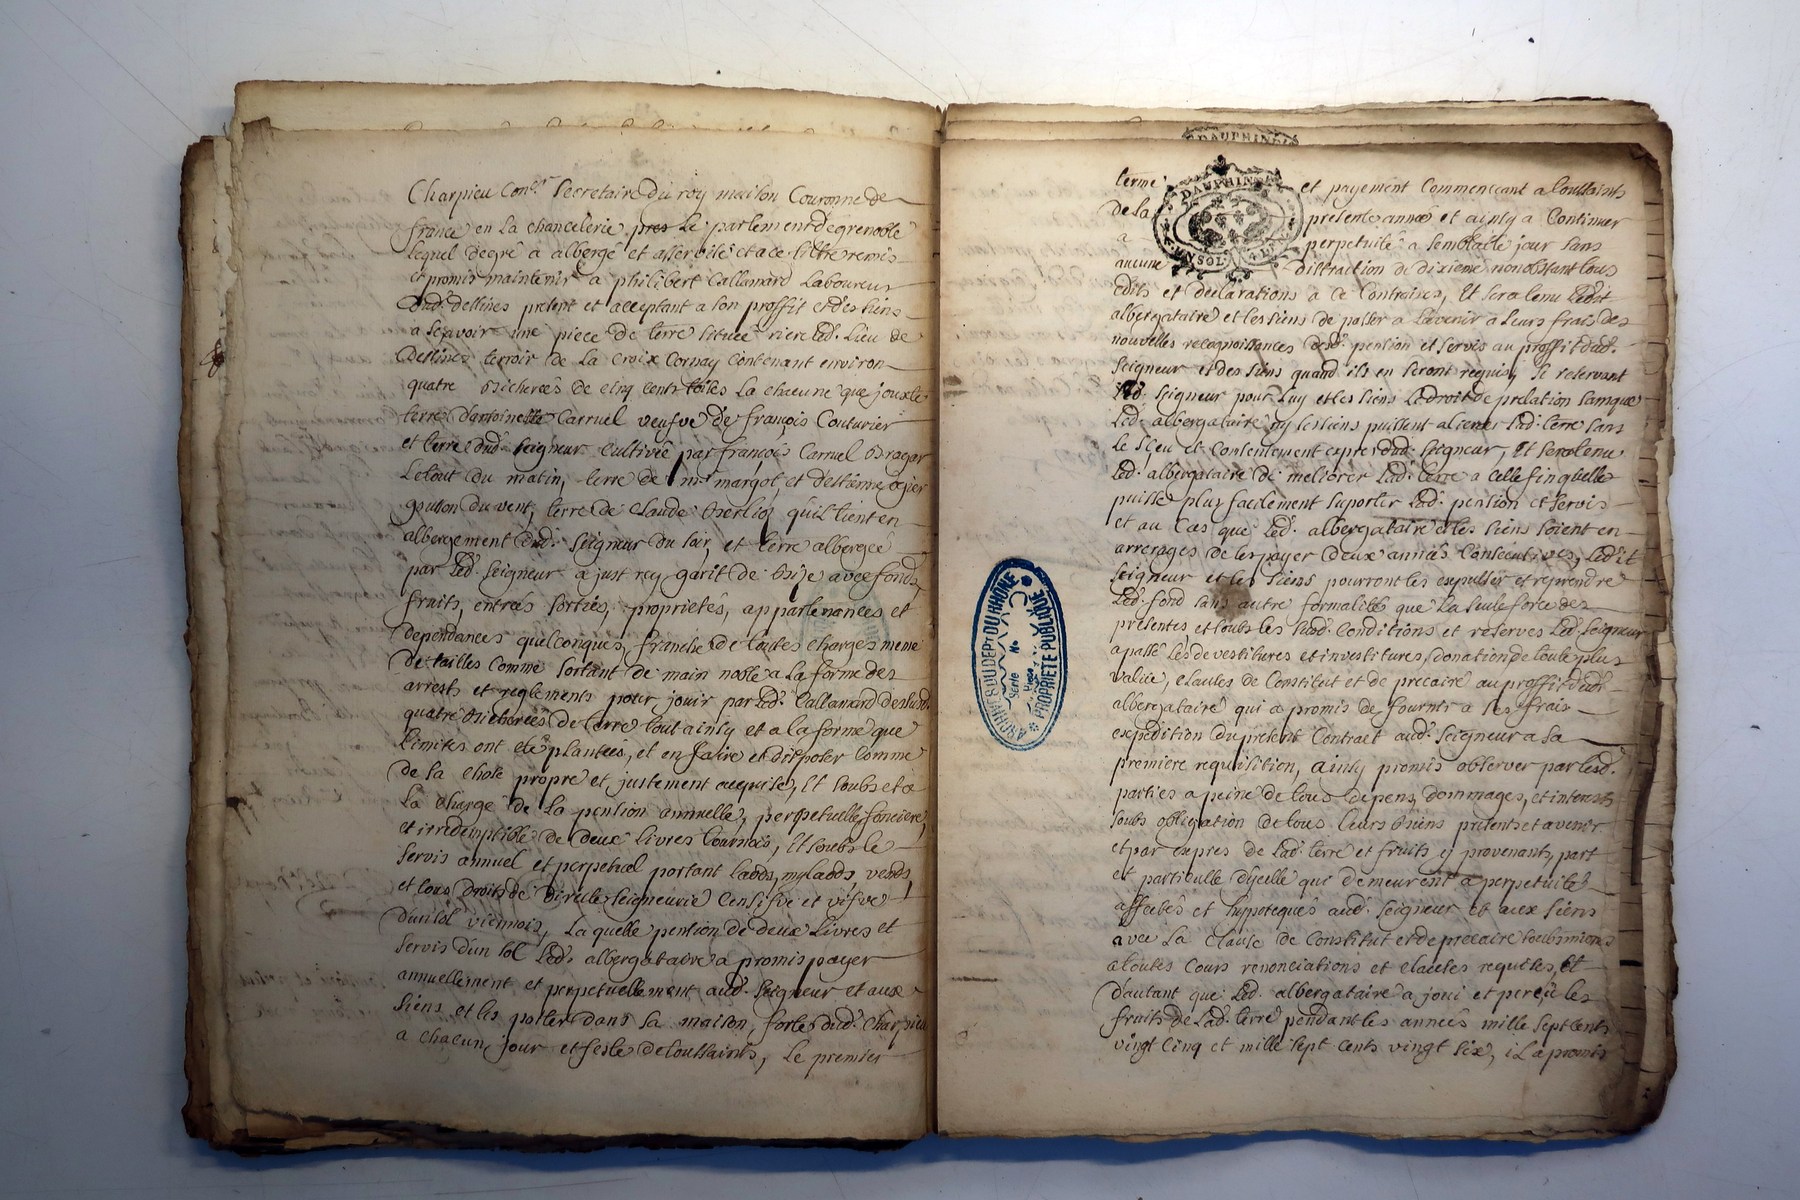 Charpieu Con.er Secretaire du roy maison Couronne de
france en la chancelerie pres le parlement de grenoble
lequel de gré a albergé et asservisé et a ce tiltre remis
et promis maintenir a philibert Callamard Laboureur
dud. dessines present et acceptant a son proffit et des siens
a sçavoir une piece de terre située riere led. Lieu de
dessines terroir de La Croix Cornay Contenant environ
quatre bicherées de cinq cents toises La chacune que jouxte
terre d'antoinette Carruel veufve de françois Couturier
et terre dud. seigneur cultivée par françois Carruel
Letout du matin, terre de mr margot et d'estienne ogier
gouson du vent, terre de Claude berlioz qu'il tient en
albergement dud. seigneur du soir, et terre albergée
par led. seigneur a just rey garit de bize avec fonds
fruits, entrées sorties, proprietés, appartenances et
dependances quelconques, franche de toutes charges meme
de tailles comme sortant de main noble a La forme des
arrests et reglements pour jouir par Led. Callamard desusd.
quatre bicherées de terre tout ainsy et a la forme que
Limites ont eté plantées, et en faire et disposer comme
de sa chose propre et justement acquise, Et soubs et a
La charge de La pention annuelle, perpetuelle fonciere,
et irredemptible de deux Livres tournois, Et soubs le
servis annuel et perpetuel portant Laods, mylaods vends,
et tous droits de directe seigneurie Censive et
d'un sol viennois, La quelle pention de deux Livres et
servis d'un sol Led. albergataire a promis payer
annuellement et perpetuellement aud. seigneur et aux
siens et les porter dans sa maison, forte dud. charpieu
a chacun jour et feste de toussaints, Le premier
DAUPHINÉ
DAUPHINÉ
UN SOL 4 DEN
terme et payement Commencant a toussaints
de La presente année et ainsy a Continuer
a perpetuité a semblable jour sans
aucune distraction de dixieme nonobstant tous
edits et declarations a ce Contraires, Et sera tenu Ledit
albergataire et les siens de passer a l'avenir a Leurs frais des
nouvelles recognoissances desd. pention et servis au proffit dud.
seigneur et des siens quand ils en seront requis, se reservant
led. seigneur pour Luy et les siens Le droit de prelation sans que
Led. albergataire ny les siens puissent aliener Lad. terre sans
Le sceu et Consentement expres dud. seigneur, Et sera tenu
Led. albergataire de meliorer Lad. terre a celle fin qu'elle
puisse plus facilement suporter Lad. pention et servis
et au cas que Led. albergataire et les siens soient en
arrerages de les payer deux années Consecutives, Ledit
seigneur et les siens pourront les expulser et reprendre
Led. fond sans autre formalité que La seule force des
presentes et soubs les susd. Conditions et reserves Led. seigneur
a passé Les devestitures et investitures, donation de toute plus
value, clauses de Constitut et de precaire au proffit dud.
albergataire qui a promis de fournir a ses frais
expedition du present Contract aud. seigneur a sa
premiere requisition, ainsy promis observer par lesd.
parties a peine de tous depens, dommages, et interests
soubs obligation de tous Leurs biens presents et avenir
et par expres de Lad. terre et fruits y provenants, part
et particulle d'ycelle qui demeurent a perpetuité
affectés et hypotequés aud. seigneur et aux siens
avec La clause de Constitut et de precaire soubsmions
a toutes Cours renonciations et clauses requises, Et
d'autant que Led. albergataire a joui et perçû les
fruits de Lad. terre pendant les années mille sept cents
vingt cinq et mille sept cents vingt six, iL a promis
ARCHIVES DU DEPT DU RHÔNE
Serie
No
Piece
PROPRIÉTÉ PUBLIQUE